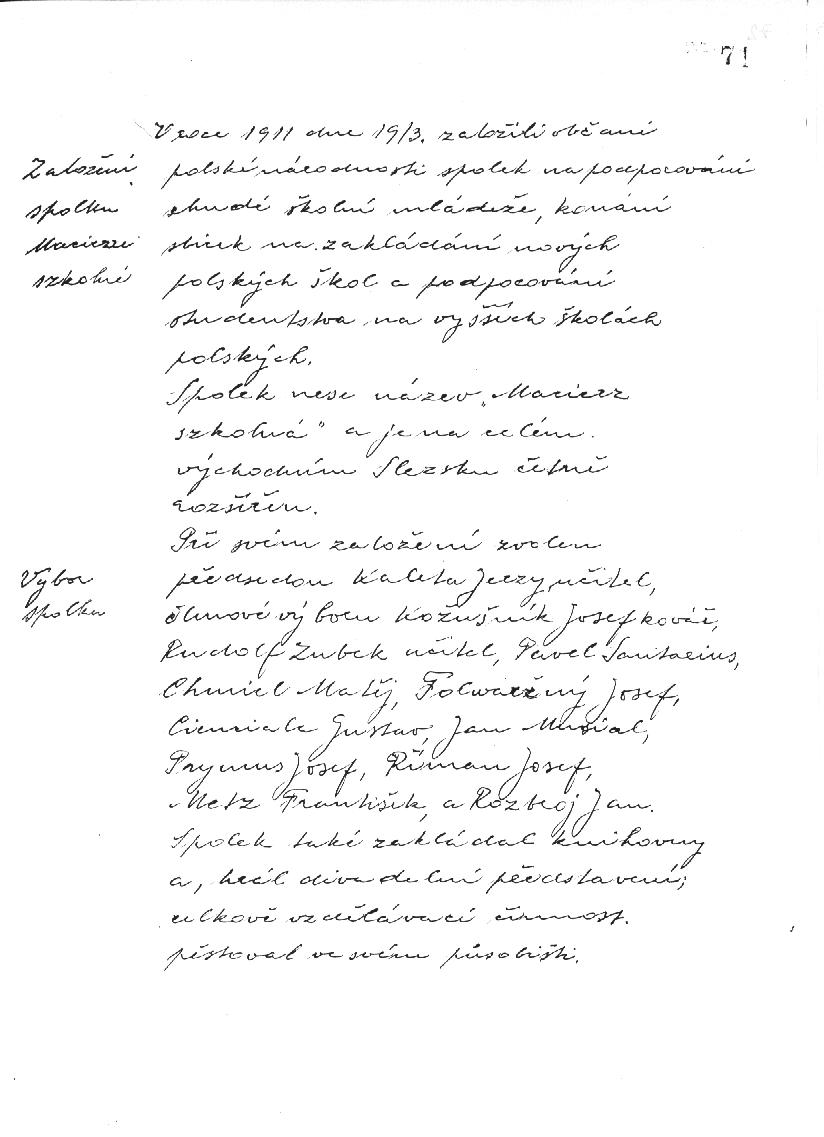 71
V roce 1911 dne 19/3. založili občani
Založení
spolku
Macierze
szkolné
polské národnosti spolek na podporování
chudé školní mládeže, konání
sbírek na zakládání nových
polských škol a podporování
studentstva na vyšších školách
polských.
Spolek nese název „Macierz
szkolná" a je na celém
východním Slezsku četně
rozšířen.
Při svém založení zvolen
Výbor
spolku
předsedou Kaleta Jerzy, učitel,
členové výboru Kožušník Josef kovář,
Rudolf Zubek učitel, Pavel Santarius,
Chmiel Matěj, Folwarczný Josef,
Cienciala Gustav, Jan Musial,
Prymus Josef, Říman Josef,
Metz František, a Rozbroj Jan.
Spolek také zakládal knihovny
a, hrál divadelní představení;
celkově vzdělávací činnost.
pěstoval ve svém působišti.